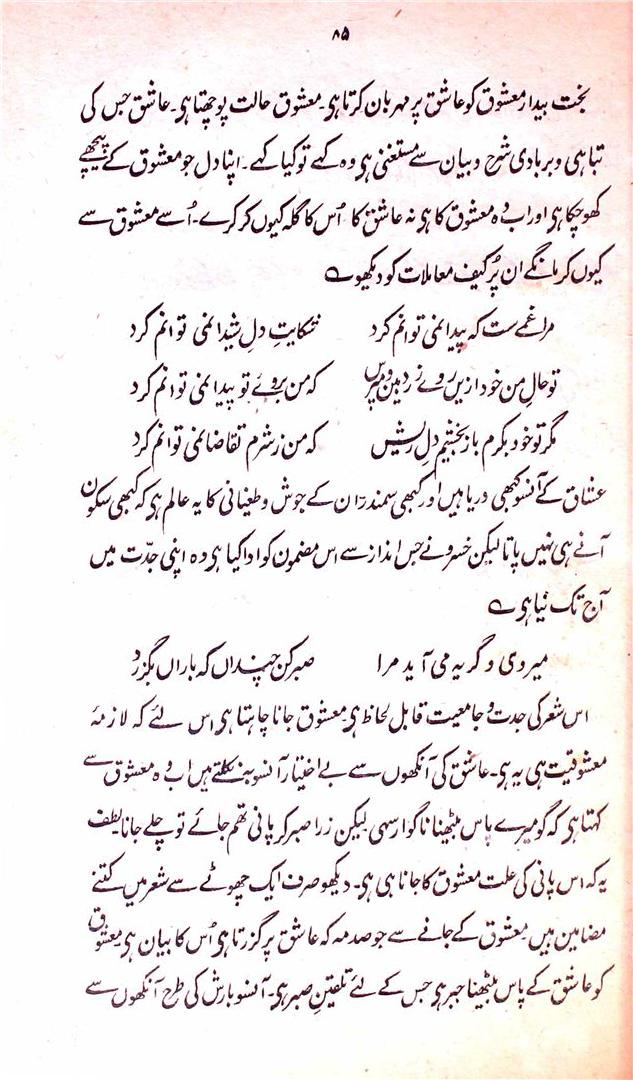 ۸۵
بخت بیدار معشوق کو عاشق پر مہربان کرتا ہی۔ معشوق حالت پوچھتا ہی۔ عاشق جس کی
تباہی و بربادی شرح و بیان سے مستغنی ہی وہ کہے تو کیا کہے۔ اپنا دل جو معشوق کے پیچھے
کھو چکا ہی اور اب وہ معشوق کا ہی نہ عاشق کا اُس کا گلہ کیوں کر کرے۔ اُسے معشوق سے
کیوں کر مانگے ان پُر کیف معاملات کو دیکھو ؎
مرا غمے ست کہ پیدا نمی توانم کرد شکایتِ دلِ شیدا نمی توانم کرد
تو حالِ من خود ازیں روے زرد بین و مپرس کہ من بروے تو پیدا نمی توانم کرد
مگر تو خود بکرم باز بخشیم دلِ ریش کہ من ز شرم تقاضا نمی توانم کرد
عشاق کے آنسو کبھی دریا ہیں اور کبھی سمندر، ان کے جوش و طغیانی کا یہ عالم ہی کہ کبھی سکون
آنے ہی نہیں پاتا لیکن خسرو نے جس انداز سے اس مضمون کو ادا کیا ہی وہ اپنی جدّت میں
آج تک نیا ہی ؎
میروی و گریہ می آید مرا صبر کن چنداں کہ باراں بگزرد
اس شعر کی جدت و جامعیت قابل لحاظ ہی۔ معشوق جانا چاہتا ہی اس لئے کہ لازمۂ
معشوقیت ہی یہ ہی۔ عاشق کی آنکھوں سے بے اختیار آنسو بہنے نکلتے ہیں اب وہ معشوق سے
کہتا ہی کہ گو میرے پاس بیٹھنا ناگوار سہی لیکن زرا صبر کر پانی تھم جائے تو چلے جانا۔ لطف
یہ کہ اس پانی کی علت معشوق کا جانا ہی ہی۔ دیکھو صرف ایک چھوٹے سے شعر میں کتنے
مضامین ہیں۔ معشوق کے جانے سے جو صدمہ کہ عاشق پر گزرتا ہی اُس کا بیان ہی معشوق
کو عاشق کے پاس بیٹھنا جبر ہی جس کے لئے تلقینِ صبر ہی۔ آنسو بارش کی طرح آنکھوں سے